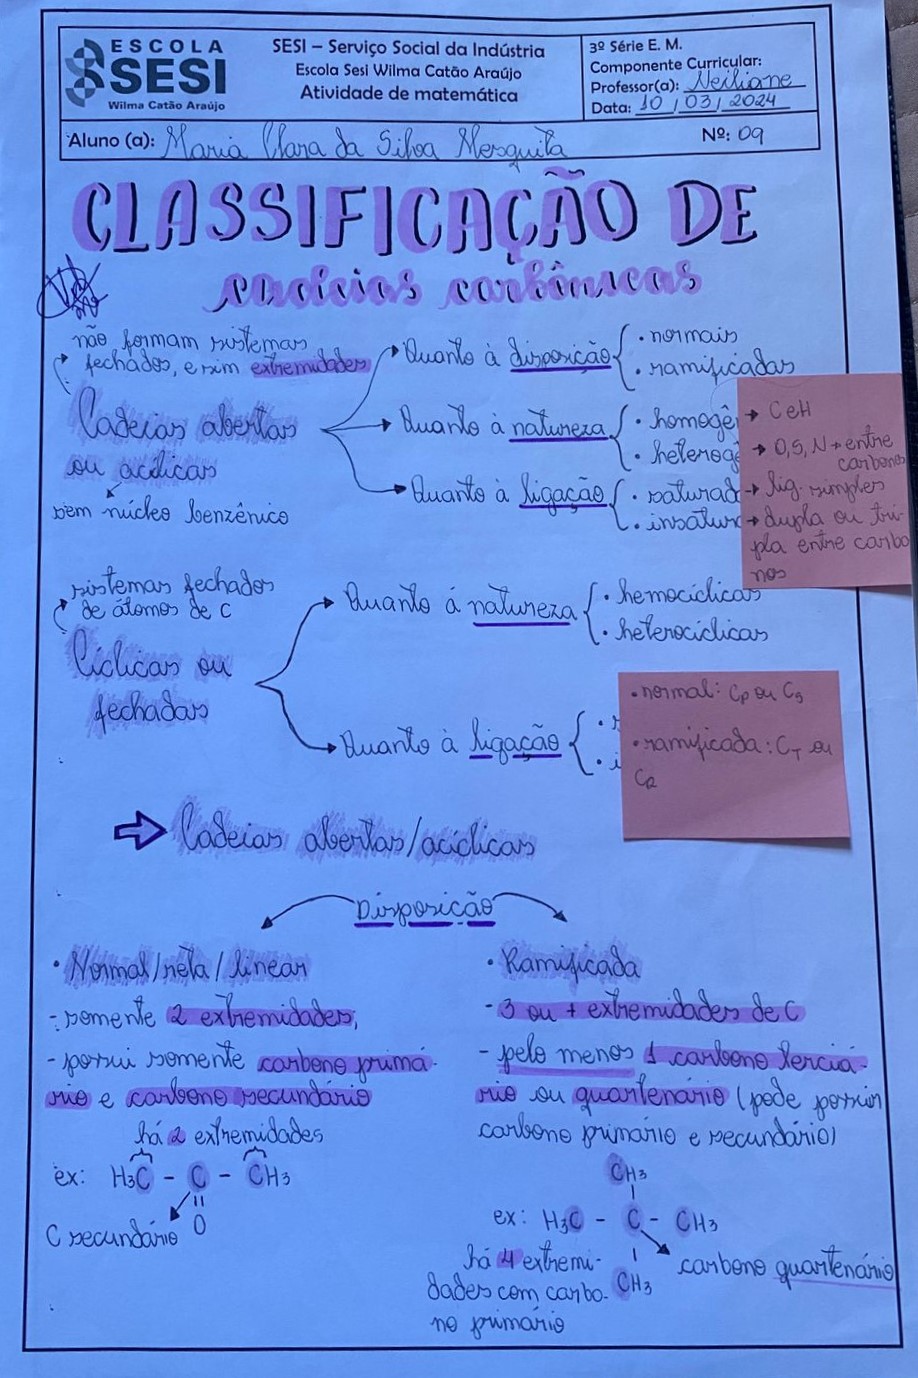 ESCOLA
SESI
Wilma Catão Araújo
SESI – Serviço Social da Indústria
Escola Sesi Wilma Catão Araújo
Atividade de matemática
3º Série E. M.
Componente Curricular:
Professor(a): Neiliane
Data: 10/03/2024
Aluno (a): Maria Clara da Silva Mesquita
Nº: 09
CLASSIFICAÇÃO DE
cadeias carbônicas
não formam sistemas
fechados, e sim extremidades
Cadeias abertas
ou acíclicas
sem núcleo benzênico
Quanto à disposição
• normais
• ramificadas
Quanto à natureza
• homogê
• heterogê
Quanto à ligação
• saturad
• insatur
→ C e H
→ O, S, N → entre
carbonos
→ lig. simples
→ dupla ou tri-
pla entre carbo
nos
sistemas fechados
de átomos de C
Cíclicas ou
fechadas
Quanto á natureza
• homocíclicas
• heterocíclicas
Quanto à ligação
• i
• normal: CP ou CS
• ramificada: CT ou
CQ
⇒ Cadeias abertas/acíclicas
Disposição
• Normal/reta/linear
- somente 2 extremidades;
- possui somente carbono primá-
rio e carbono secundário
há 2 extremidades
ex: H3C - C - CH3
O
C secundário
• Ramificada
- 3 ou + extremidades de C
- pelo menos 1 carbono terciá-
rio ou quartenário (pode possuir
carbono primário e secundário)
CH3
ex: H3C - C - CH3
CH3
carbono quartenário
há 4 extremi-
dades com carbo-
no primário